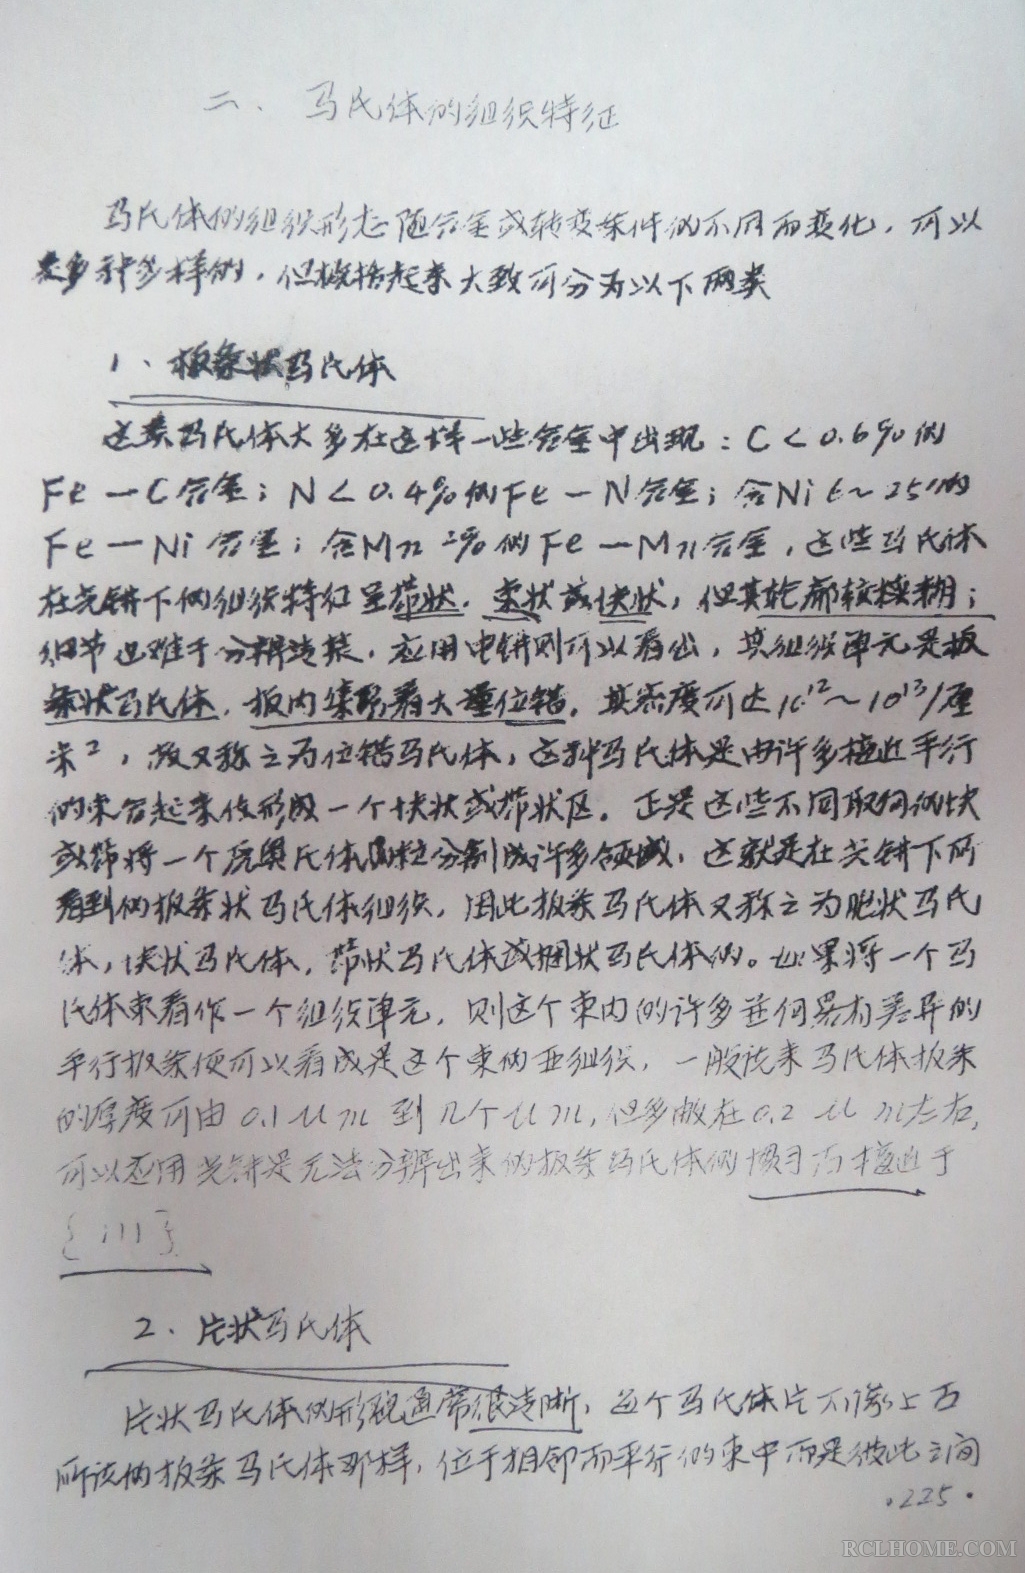 二、马氏体的组织特征
马氏体的组织形态随合金或转变条件的不同而变化，可以
是多种多样的，但概括起来大致可分为以下两类
1、板条状马氏体
这类马氏体大多在这样一些合金中出现：C＜0.6%的
Fe—C合金；N＜0.4%的Fe—N合金；含Ni 6～25%的
Fe—Ni合金；含Mn 2%的Fe—Mn合金，这些马氏体
在光镜下的组织特征呈带状、束状或块状，但其轮廓较模糊；
细节也难于分辨清楚，应用电镜则可以看出，其组织单元是板
条状马氏体，板内集聚着大量位错，其密度可达10¹²～10¹³/厘
米²，故又称之为位错马氏体，这种马氏体是由许多接近平行
的束合起来使形成一个块状或带状区。正是这些不同取向的块
或带将一个原奥氏体晶粒分割成许多领域，这就是在光镜下所
看到的板条状马氏体组织，因此板条马氏体又称之为胞状马氏
体，块状马氏体，带状马氏体或捆状马氏体的。如果将一个马
氏体束看作一个组织单元，则这个束内的许多位向略有差异的
平行板条便可以看成是这个束的亚组织，一般说来马氏体板条
的厚度可由0.1μm到几个μm，但多数在0.2μm左右，
可以应用光镜是无法分辨出来的板条马氏体的惯习面接近于
{111}
2、片状马氏体
片状马氏体的形貌通常很清晰，每个马氏体片不像上面
所说的板条马氏体那样，位于相邻而平行的束中而是彼此之间
·225·
RCLHOME.COM